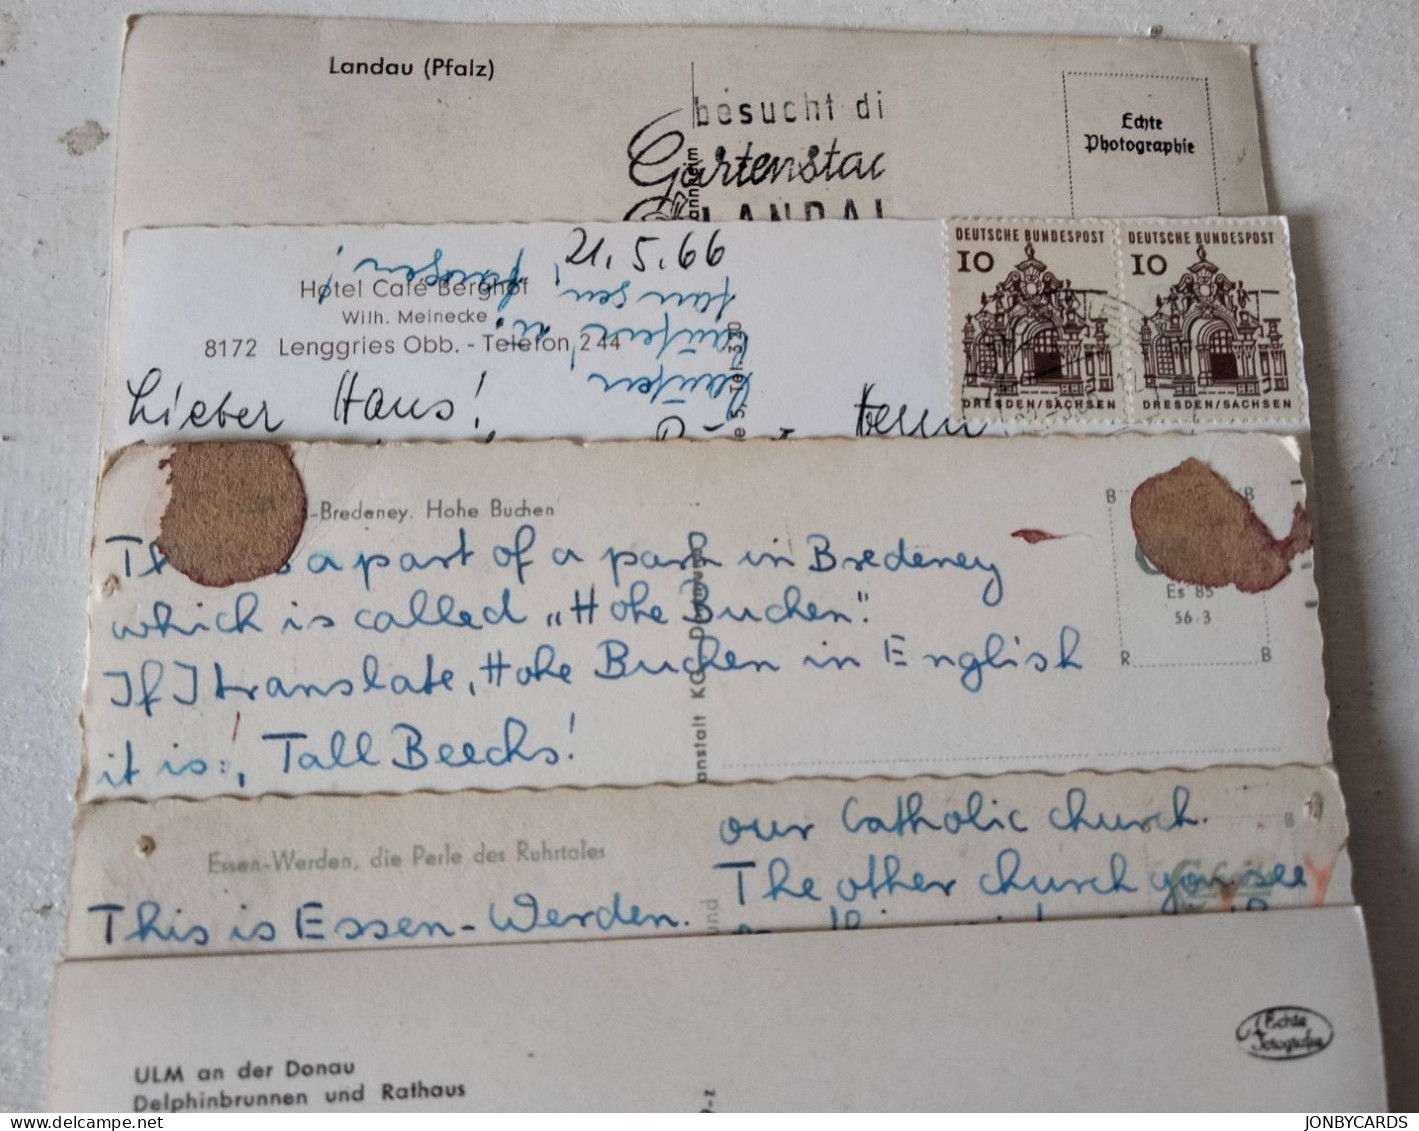 Landau (Pfalz)
besucht di
Gartenstad
LANDAU
Echte
Photographie
21.5.66
Hotel Café Berghof
Wilh. Meinecke
8172 Lenggries Obb. - Telefon 244
Lieber Hans!
Herrn
DEUTSCHE BUNDESPOST
10
DRESDEN/SACHSEN
DEUTSCHE BUNDESPOST
10
DRESDEN/SACHSEN
-Bredeney. Hohe Buchen
a part of a park in Bredeney
which is called „Hohe Buchen“.
If I translate, Hohe Buchen in English
it is:, Tall Beechs!
anstalt KG Dortmund
B B
Es 85
56/3
R B
Essen-Werden, die Perle des Ruhrtales
This is Essen-Werden.
our Catholic church.
The other church you see
B
und
ULM an der Donau
Delphinbrunnen und Rathaus
Echte
Fotografie
JONBYCARDS